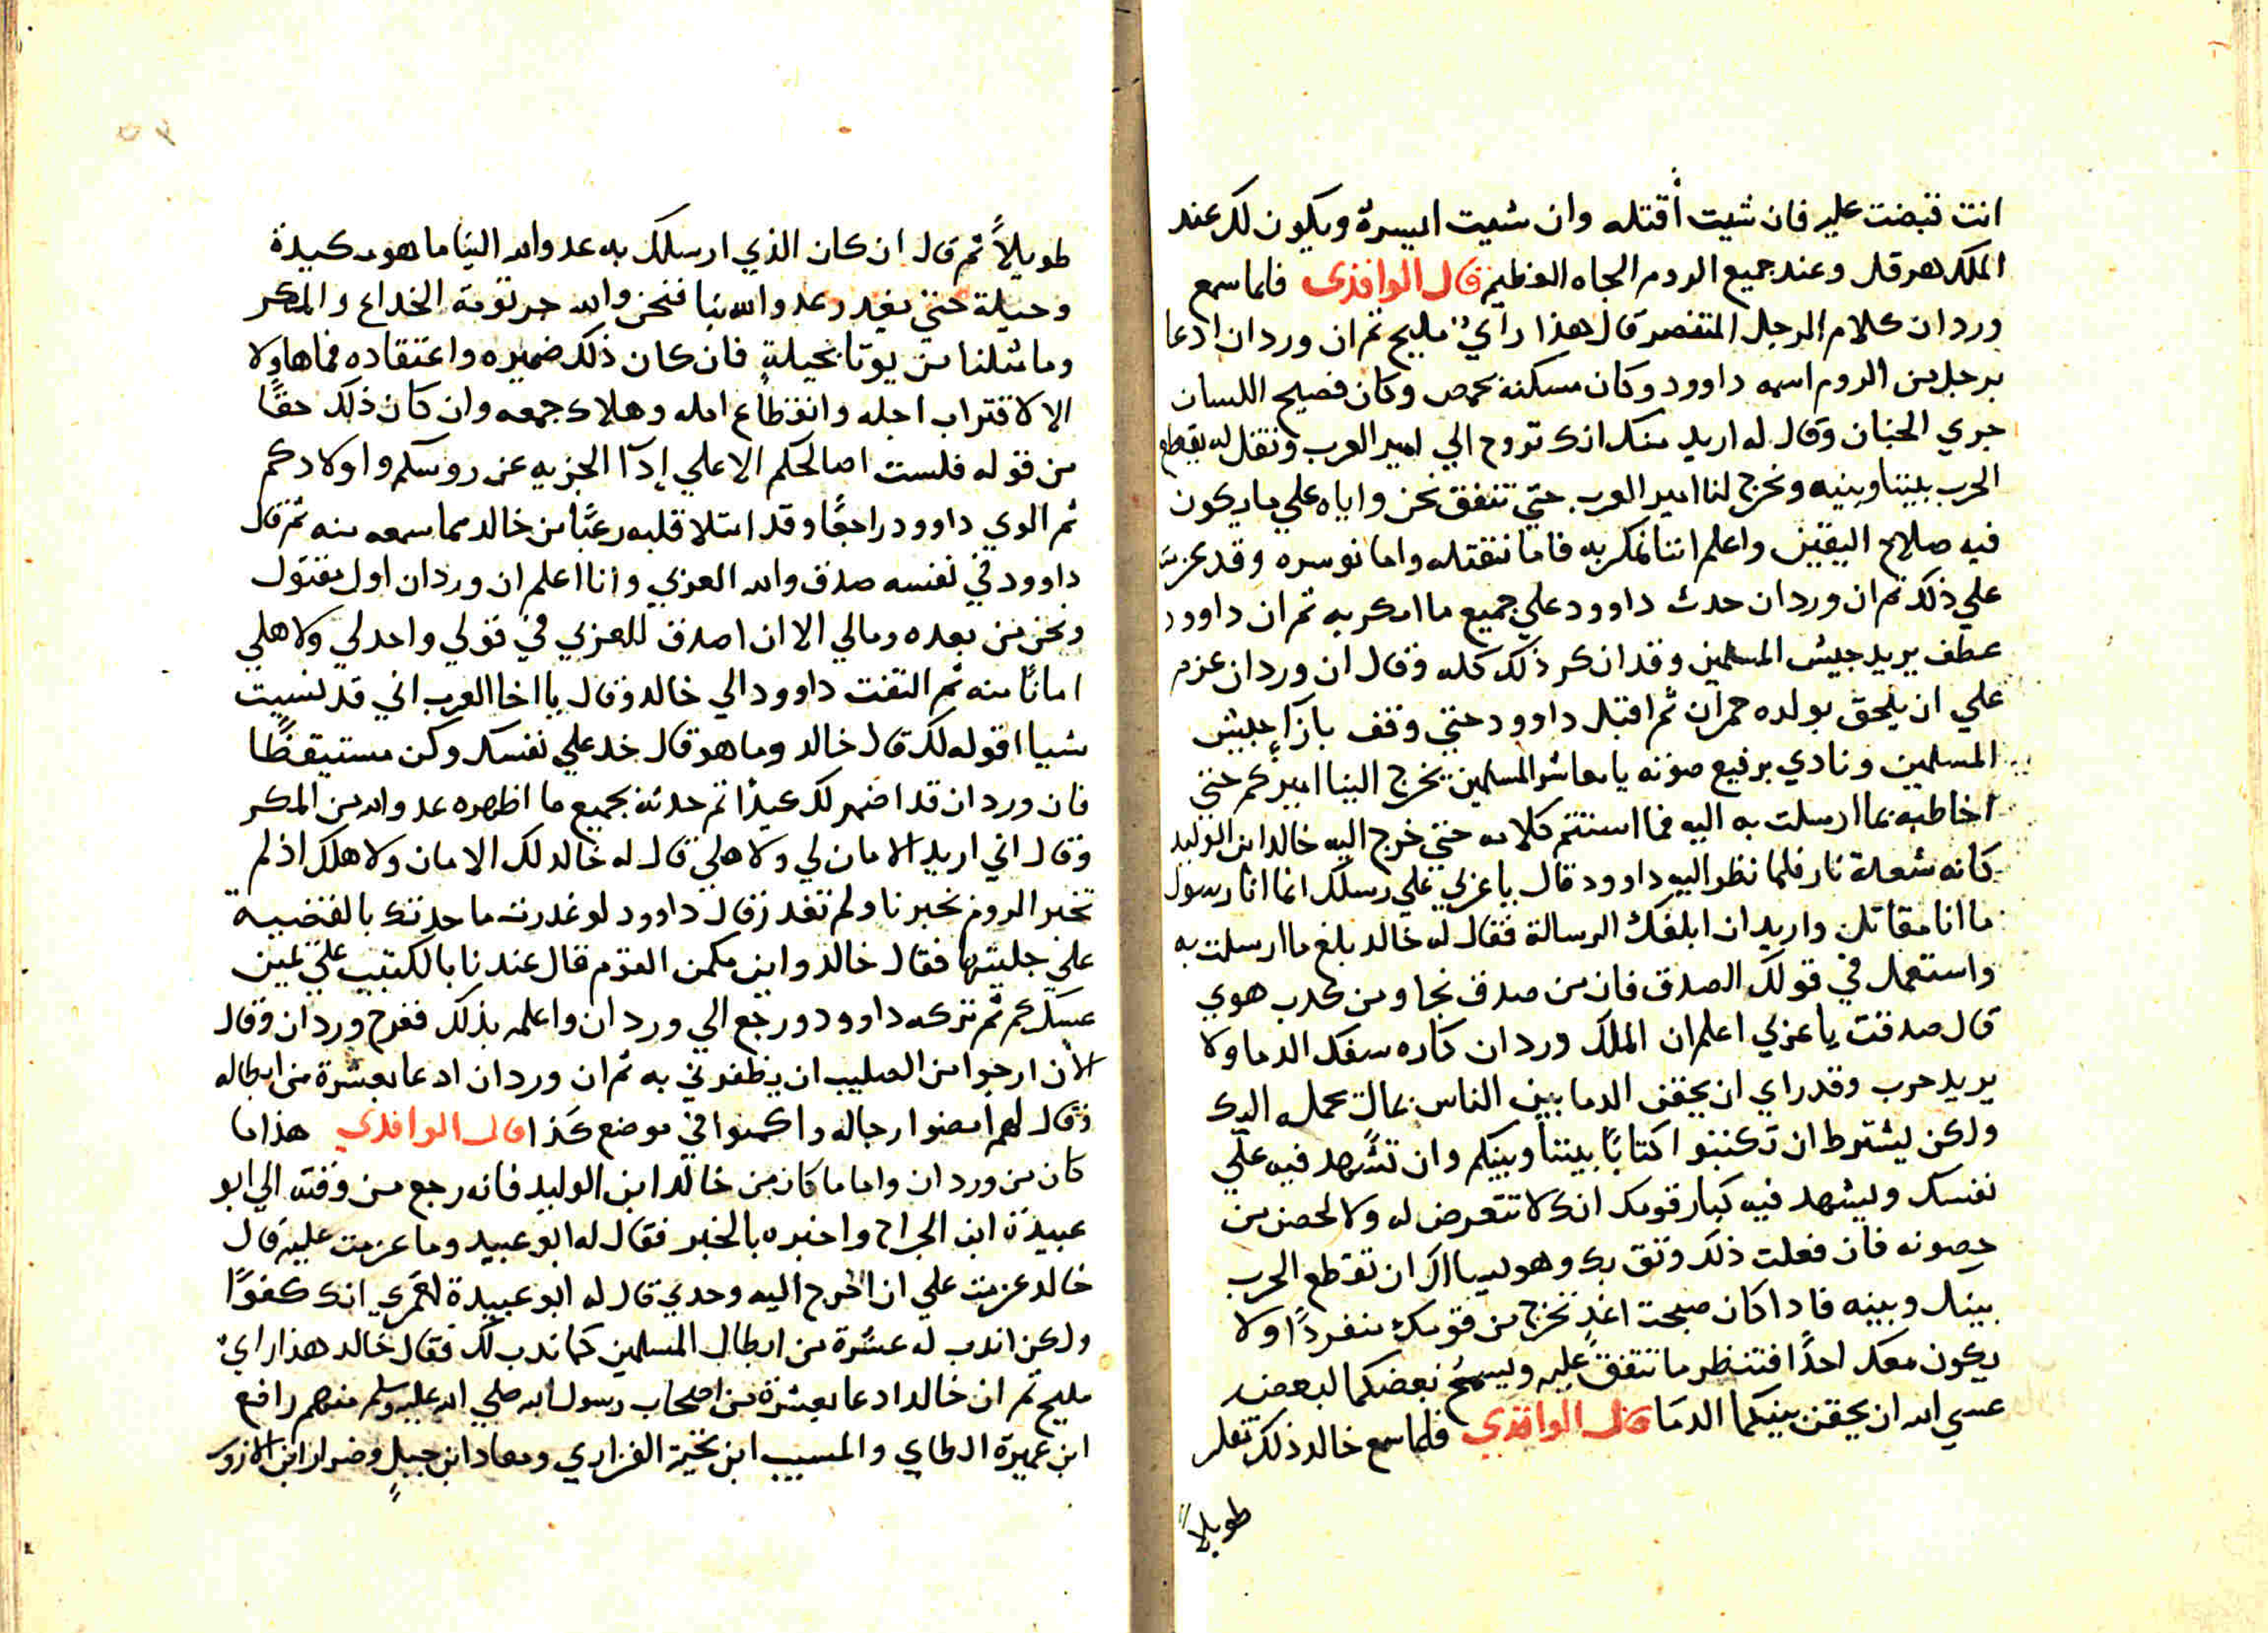 انت قبضت عليه فان شيت أقتله وان شيت اليسرة ويكون لك عند
الملك هرقل وعند جميع الروم الجاه العظيم قال الواقدى فلما سمع
وردان كلام الرجل المتنصر قال هذا رايٌ مليح ثم ان وردان ادعا
برجل من الروم اسمه داوود وكان مسكنه بحمص وكان فصيح اللسان
جري الجنان وقال له اريد منك انك تروح الي امير العرب وتقل له يقطع
الحرب بيننا وبينه ونخرج لنا امير العرب حتي نتفق نحن واياه علي ما يكون
فيه صلاح اليقين واعلم اننا نمكر به فاما نقتله واما نوسره وقد عزمت
علي ذلك ثم ان وردان حدث داوود علي جميع ما امكر به ثم ان داوود
عطف يريد جيش المسلمين وقد انكر ذلك كله وقال ان وردان عزم
علي ان يلحق بولده حمران ثم اقبل داوود حتي وقف بازآء جيش
المسلمين ونادي برفيع صوته يا معاشر المسلمين يخرج الينا اميركم حتي
اخاطبه بما ارسلت به اليه فما استتم كلامه حتي خرج اليه خالد ابن الوليد
كانه شعلة نار فلما نظر اليه داوود قال يا عربي علي رسلك انما انا رسول
ما انا مقاتل واريد ان ابلغك الرسالة فقال له خالد بلغ ما ارسلت به
واستعمل في قولك الصدق فان من صدق نجا ومن كدب هوي
قال صدقت يا عربي اعلم ان الملك وردان كاره سفك الدما ولا
يريد حرب وقد راي ان يحقن الدما بين الناس بمال يحمله اليك
ولكن يشترط ان تكتبوا كتابًا بيننا وبينكم وان تشهد فيه علي
نفسك ويشهد فيه كبار قومك انك لا تتعرض له ولا لحصن من
حصونه فان فعلت ذلك وثق بك وهو يسالك ان تقطع الحرب
بينك وبينه فادا كان صبحت اغدٍ تخرج من قومك منفردًا ولا
يكون معك احدًا فتنظر ما تتفق عليه ويسمح بعضكما لبعض
عسي الله ان يحقن بينكما الدما قال الواقدي فلما سمع خالد ذلك تفكر
طويلاً
طويلاً ثم قال ان كان الذي ارسلك به عدو الله الينا ما هو مكيدة
وحيلة حتي يغدر عدو الله بنا فنحن والله جرثومة الخداع والمكر
وما مثلنا من يوتا بحيلةٍ فان كان ذلك ضميره واعتقاده فما هاولا
الا لاقتراب اجله وانقطاع امله وهلاك جمعه وان كان ذلك حقًا
من قوله فلست اصالحكم الا علي إدآ الجزيه عن روسكم واولادكم
ثم الوي داوود راجعًا وقد امتلا قلبه رعبًا من خالد مما سمعه منه ثم قال
داوود في نفسه صدق والله العربي وانا اعلم ان وردان اول مقتول
ونحن من بعده ومالي الا ان اصدق للعربي في قولي واخد لي ولاهلي
امانًا منه ثم التفت داوود الي خالد وقال يا اخا العرب اني قد نسيت
شيا اقوله لك قال خالد وما هو قال خد علي نفسك وكن مستيقظًا
فان وردان قد اضمر لك كيدًا ثم حدثه بجميع ما اظهره عدو الله من المكر
وقال اني اريد الامان لي ولاهلي قال له خالد لك الامان ولاهلك اذ لم
تخبر الروم بخبرنا ولم تغدر قال داوود لو غدرت ما حدثتك بالقضيه
علي جليتها فقال خالد واين مكمن القوم قال عندنا بالكثيب علي يمين
عسكركم ثم تركه داوود ورجع الي وردان واعلمه بذلك ففرح وردان وقال
الأن ارجوا من الصليب ان يظفرني به ثم ان وردان ادعا بعشرة من ابطاله
وقال لهم امضوا رجاله واكمنوا في موضع كذا قال الواقدي هذا ما
كان من وردان واما ما كان من خالد ابن الوليد فانه رجع من وقته الي ابو
عبيدة ابن الجراح واخبره بالخبر فقال له ابو عبيد وما عزمت عليه قال
خالد عزمت علي ان اخرج اليه وحدي قال له ابو عبيدة لعمري انك كفوًا
ولكن اندب له عشرة من ابطال المسلمين كما ندب لك فقال خالد هذا رايٌ
مليح ثم ان خالد ادعا بعشرة من اصحاب رسول الله صلي الله عليه وسلم منهم رافع
ابن عميرة الطاي والمسيب ابن نخية الفزاري ومعاد ابن جبلٍ وضرار ابن الازور